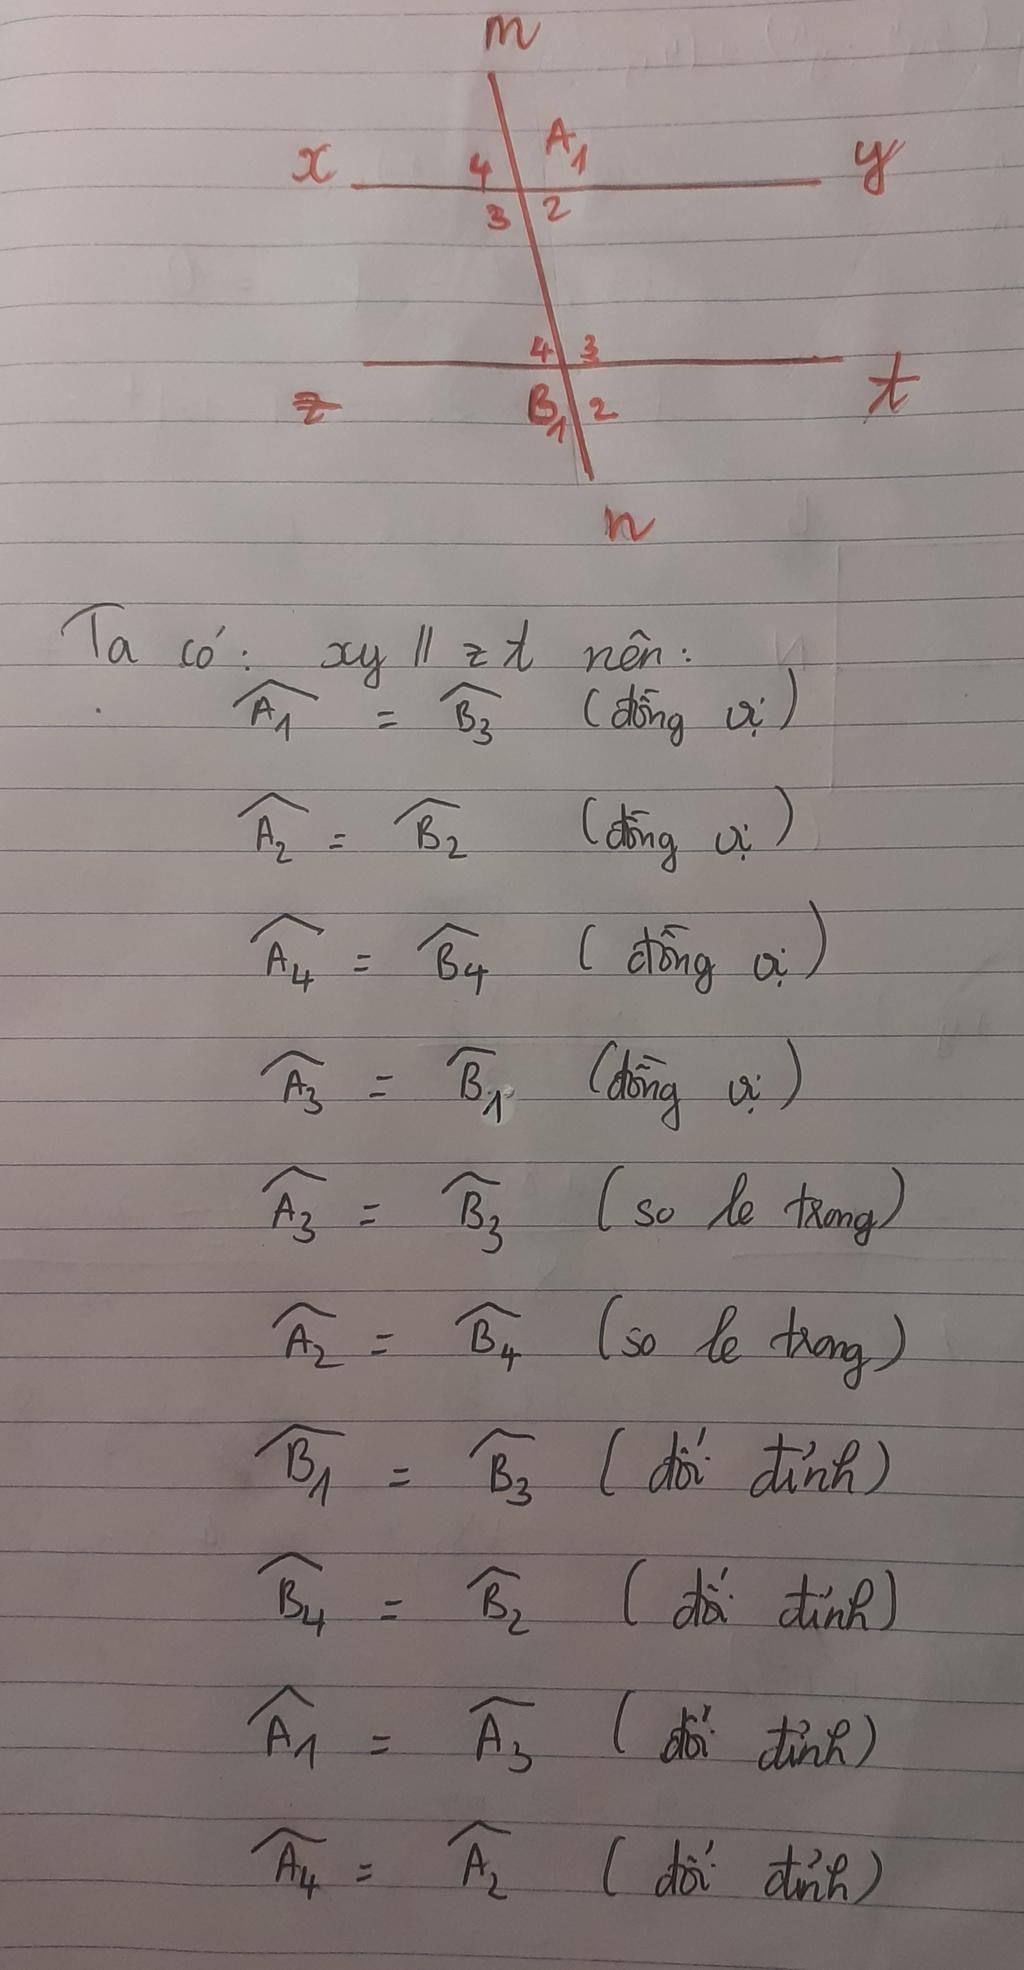 m
x 4 A1 y
3 2
4 3
z B1 2 t
n
Ta có: xy // zt nên:
Â1 = B̂3 (đồng vị)
Â2 = B̂2 (đồng vị)
Â4 = B̂4 (đồng vị)
Â3 = B̂1 (đồng vị)
Â3 = B̂3 (so le trong)
Â2 = B̂4 (so le trong)
B̂1 = B̂3 (đối đỉnh)
B̂4 = B̂2 (đối đỉnh)
Â1 = Â3 (đối đỉnh)
Â4 = Â2 (đối đỉnh)